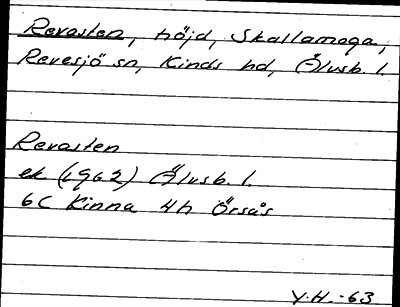 Revasten, höjd, Skallamoga,
Revesjö sn, Kinds hd, Älvsb. l.
Revasten
ek (1962) Älvsb. l.
6C Kinna 4h Örsås
Y.H. -63